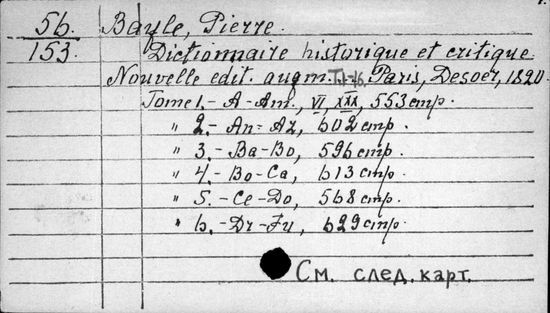 56. Bayle, Pierre.
153. Dictionnaire historique et critique.
Nouvelle edit. augm. T.1-16. Paris, Desoer, 1820.
Tome 1.- A-Am., VI, XXX, 553 стр.
" 2.- An-Az, 602 стр.
" 3.- Ba-Bo, 596 стр.
" 4.- Bo-Ca, 613 стр.
" 5.- Ce-Do, 568 стр.
" 6.- Dr-Fu, 629 стр.
См. след. карт.